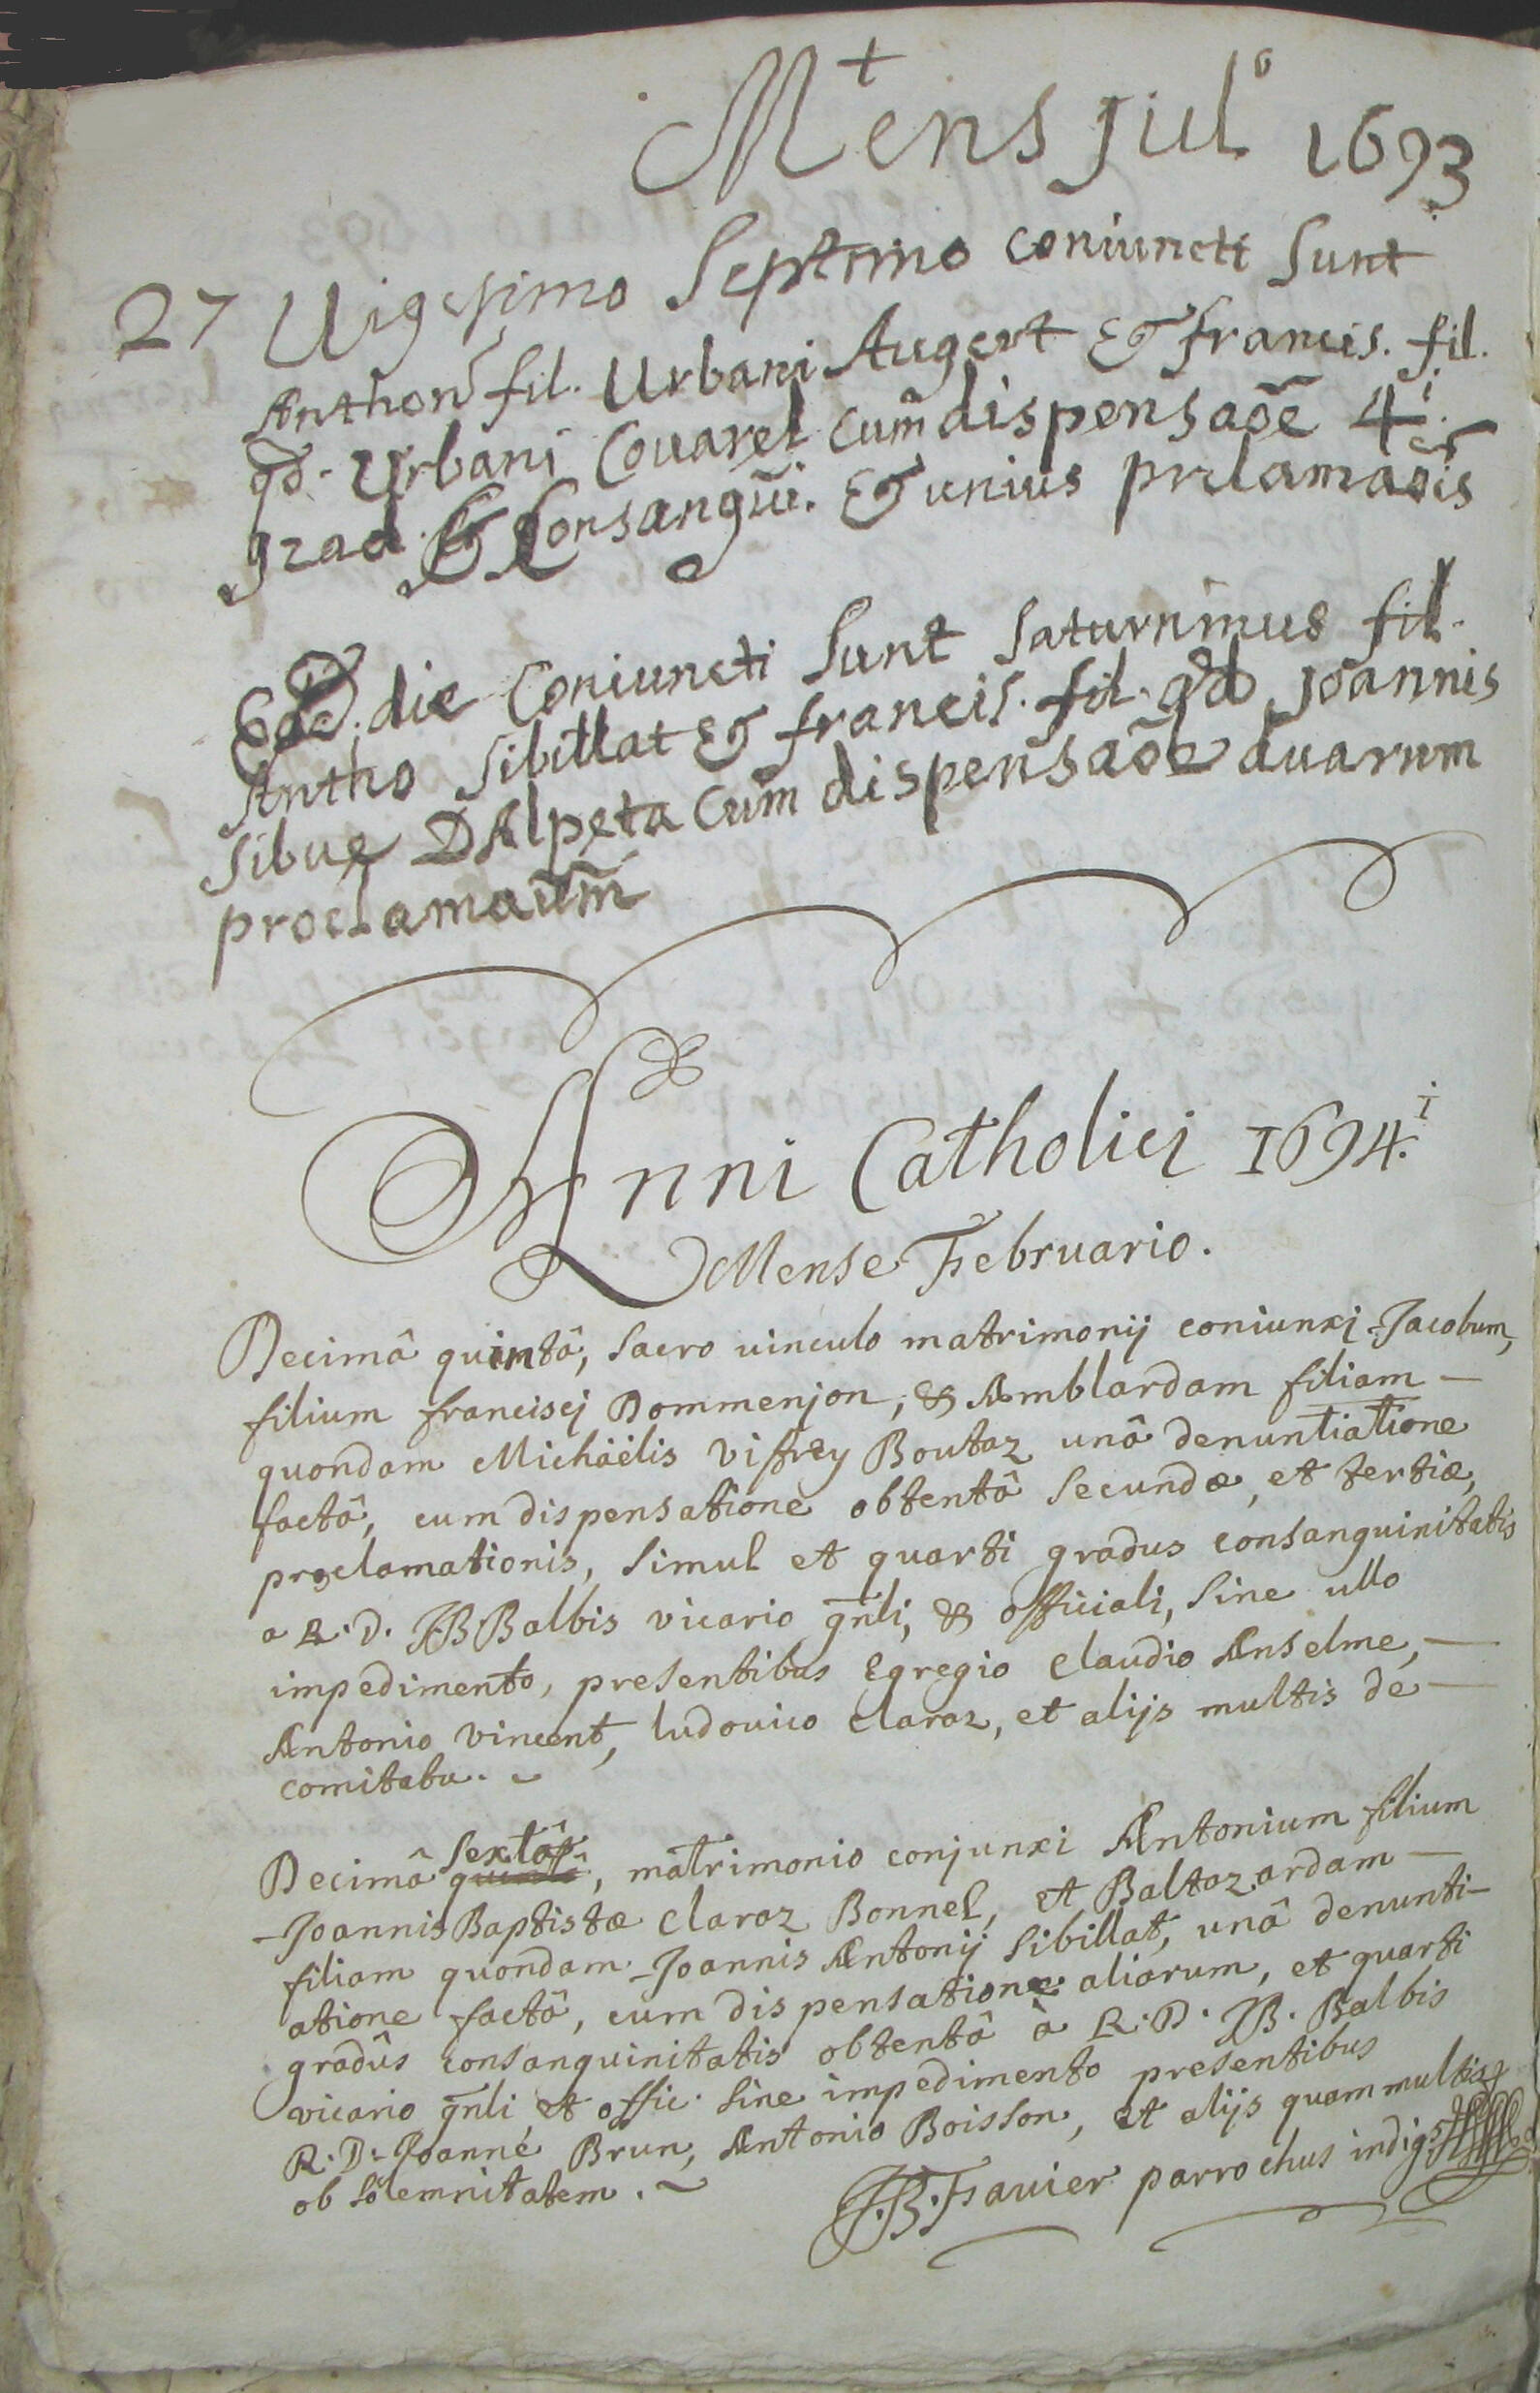 +
Mens Jul° 1693
27 Uigesimo Septimo coniuncti Sunt
Anthon fil. Urbani Augert & francis. fil.
qd. Urbani Couarel cum dispensaõe 4i.
grad. & Consangui. & unius prclamaõis
Ead. die Coniuncti Sunt Saturninus fil.
Antho Sibillat & francis. fil. qd Joannis
Sibue DAlpeta Cum dispensaõe duarum
proclamaum
Anni Catholici 1694.i
Mense Februario.
Decimâ quintâ, sacro uinculo matrimonij coniunxi Jacobum,
filium francisci Dommenjon, & Amblardam filiam —
quondam Michäelis Viffrey Boutaz unâ denuntiatione
factâ, cum dispensatione obtentâ secundæ, et tertiæ,
proclamationis, simul et quarti gradus consanguinitatis
a R. D. JB Balbis vicario gñli, & officiali, sine ullo
impedimento, presentibus Egregio Claudio Anselme, —
Antonio Vincent, ludouico Claraz, et alijs multis de —
comitatu.
Decimâ sextâ quintâ, matrimonio conjunxi Antonium filium
Joannis Baptistæ Claraz Bonnel, et Baltazardam —
filiam quondam Joannis Antonij Sibillat, unâ denunti-
atione factâ, cum dispensatione aliarum, et quarti
gradûs consanguinitatis obtentâ à R. D. JB. Balbis
vicario gñli et offic. sine impedimento presentibus
R. D. Joanne Brun, Antonio Boisson, et alijs quam multis
ob solemnitatem.
J.B. Fauier parrochus indigs